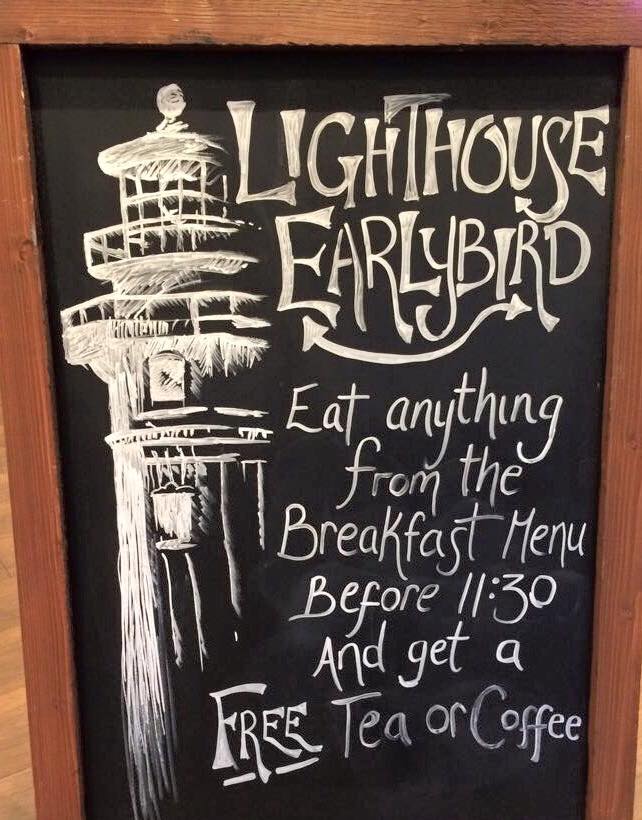 LIGHTHOUSE
EARLYBIRD
Eat anything
from the
Breakfast Menu
Before 11:30
And get a
FREE Tea or Coffee